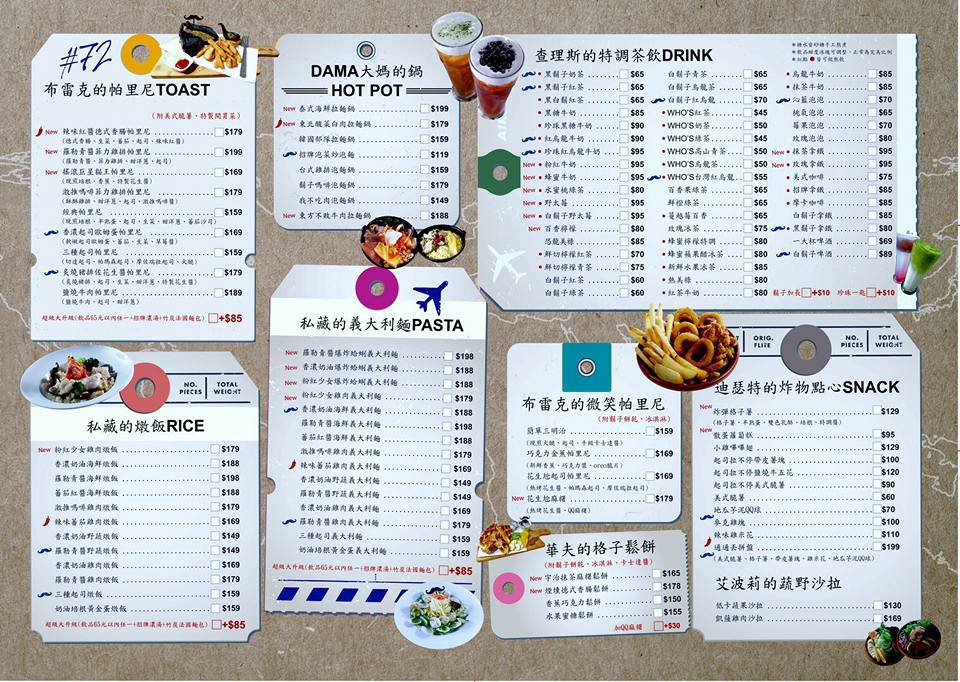 #72
布雷克的帕里尼TOAST
(附美式脆薯、特製開胃菜)
New 辣味紅醬德式香腸帕里尼 $179
(德式香腸、生菜、蕃茄、起司、辣味紅醬)
New 羅勒青醬菲力雞排帕里尼 $199
(羅勒青醬、菲力雞排、甜洋蔥、起司)
New 搖滾巨星貓王帕里尼 $169
(現煎培根、香蕉、特製花生醬)
激推嗎啡菲力雞排帕里尼 $179
經典帕里尼 $159
香濃起司歐姆蛋帕里尼 $169
三種起司帕里尼 $159
炙燒豬排佐花生醬帕里尼 $179
鹽燒牛肉帕里尼 $189
(鹽燒牛肉、起司、甜洋蔥)
超級大升級(飲品65元以內任一+招牌濃湯+竹炭法國麵包) +$85
DAMA大媽的鍋
HOT POT
New 泰式海鮮拉麵鍋 $199
New 東北酸菜白肉拉麵鍋 $179
韓國部隊拉麵鍋 $159
招牌泡菜炒泡麵 $119
台式雞排泡麵鍋 $159
鬍子嗎啡泡麵鍋 $179
我不吃肉泡麵鍋 $149
New 東方不敗牛肉拉麵鍋 $188
查理斯的特調茶飲DRINK
黑鬍子奶茶 $65
黑鬍子紅茶 $65
黑白鬍紅茶 $65
黑糖牛奶 $85
珍珠黑糖牛奶 $90
紅烏龍牛奶 $90
New 珍珠紅烏龍牛奶 $95
New 粉紅牛奶 $95
New 蜂蜜牛奶 $95
New 水蜜桃綠茶 $80
New 野太莓 $95
New 白鬍子野太莓 $95
New 百香檸檬 $80
恐龍美祿 $85
鮮切檸檬紅茶 $70
鮮切檸檬青茶 $75
白鬍子紅茶 $60
白鬍子綠茶 $60
白鬍子青茶 $65
白鬍子烏龍茶 $65
白鬍子紅烏龍 $70
WHO'S綠奶茶 $45
WHO'S奶茶 $50
WHO'S高山青茶 $50
WHO'S烏龍茶 $50
WHO'S台灣紅烏龍 $55
百香果綠茶 $65
鮮橙綠茶 $65
蔓越莓百香 $65
玫瑰冰茶 $75
蜂蜜檸檬特調 $80
蜂蜜蘋果醋冰茶 $80
新鮮水果冰茶 $85
熱美祿 $80
紅茶牛奶 $80
烏龍牛奶 $85
抹茶牛奶 $85
沁藍泡泡 $70
桃氣泡泡 $65
莓果泡泡 $70
玫瑰泡泡 $65
New 抹茶拿鐵 $95
New 玫瑰拿鐵 $95
美式咖啡 $75
招牌拿鐵 $85
摩卡咖啡 $85
白鬍子拿鐵 $85
黑鬍子拿鐵 $85
一大杯啤酒 $69
白鬍子啤酒 $89
鬍子加長 +$10 珍珠一起 +$10
NO. PIECES
TOTAL WEIGHT
私藏的燉飯RICE
New 粉紅少女雞肉燉飯 $179
香濃奶油海鮮燉飯 $188
羅勒青醬海鮮燉飯 $198
蕃茄紅醬海鮮燉飯 $188
激推嗎啡雞肉燉飯 $179
辣味蕃茄雞肉燉飯 $169
香濃奶油野蔬燉飯 $149
羅勒青醬野蔬燉飯 $149
香濃奶油雞肉燉飯 $169
羅勒青醬雞肉燉飯 $179
三種起司燉飯 $159
奶油培根黃金蛋燉飯 $159
超級大升級(飲品65元以內任一+招牌濃湯+竹炭法國麵包) +$85
私藏的義大利麵PASTA
New 羅勒青醬爆炸蛤蜊義大利麵 $198
New 香濃奶油爆炸蛤蜊義大利麵 $188
New 粉紅少女爆炸蛤蜊義大利麵 $188
New 粉紅少女雞肉義大利麵 $179
香濃奶油海鮮義大利麵 $188
羅勒青醬海鮮義大利麵 $198
蕃茄紅醬海鮮義大利麵 $188
激推嗎啡雞肉義大利麵 $179
辣味蕃茄雞肉義大利麵 $169
香濃奶油野蔬義大利麵 $149
羅勒青醬野蔬義大利麵 $149
香濃奶油雞肉義大利麵 $169
羅勒青醬雞肉義大利麵 $179
三種起司義大利麵 $159
奶油培根黃金蛋義大利麵 $159
超級大升級(飲品65元以內任一+招牌濃湯+竹炭法國麵包) +$85
布雷克的微笑帕里尼
(附鬍子餅乾、冰淇淋)
簡單三明治 $159
(現煎火腿、起司、手做卡士達醬)
巧克力金蕉帕里尼 $169
(新鮮香蕉、巧克力醬、oreo脆片)
花生尬起司帕里尼 $169
(熱烤花生醬、帕瑪森起司、摩佐瑞拉起司)
New 花生尬麻糬 $179
(熱烤花生醬、QQ麻糬)
華夫的格子鬆餅
(附鬍子餅乾、冰淇淋、卡士達醬)
New 宇治抹茶麻糬鬆餅 $165
New 煙燻德式香腸鬆餅 $178
香蕉巧克力鬆餅 $150
水果蜜糖鬆餅 $155
加QQ麻糬 +$30
ORIG. FLITE
NO. PIECES
TOTAL WEIGHT
迪瑟特的炸物點心SNACK
New 炸彈格子薯 $129
(格子薯、半熟蛋、雙色乳酪、培根、特調醬)
New 散蛋蘿蔔糕 $95
小雞嗶嗶翅 $129
起司拉不停帶皮薯塊 $100
起司拉不停鹽燒牛五花 $120
起司拉不停美式脆薯 $90
美式脆薯 $60
地瓜芋泥QQ球 $70
麥克雞塊 $100
辣味雞米花 $110
通通丟拼盤 $199
(美式脆薯、格子薯、帶皮薯塊、雞米花、地瓜芋泥QQ球)
艾波莉的蔬野沙拉
低卡蔬果沙拉 $130
凱薩雞肉沙拉 $169